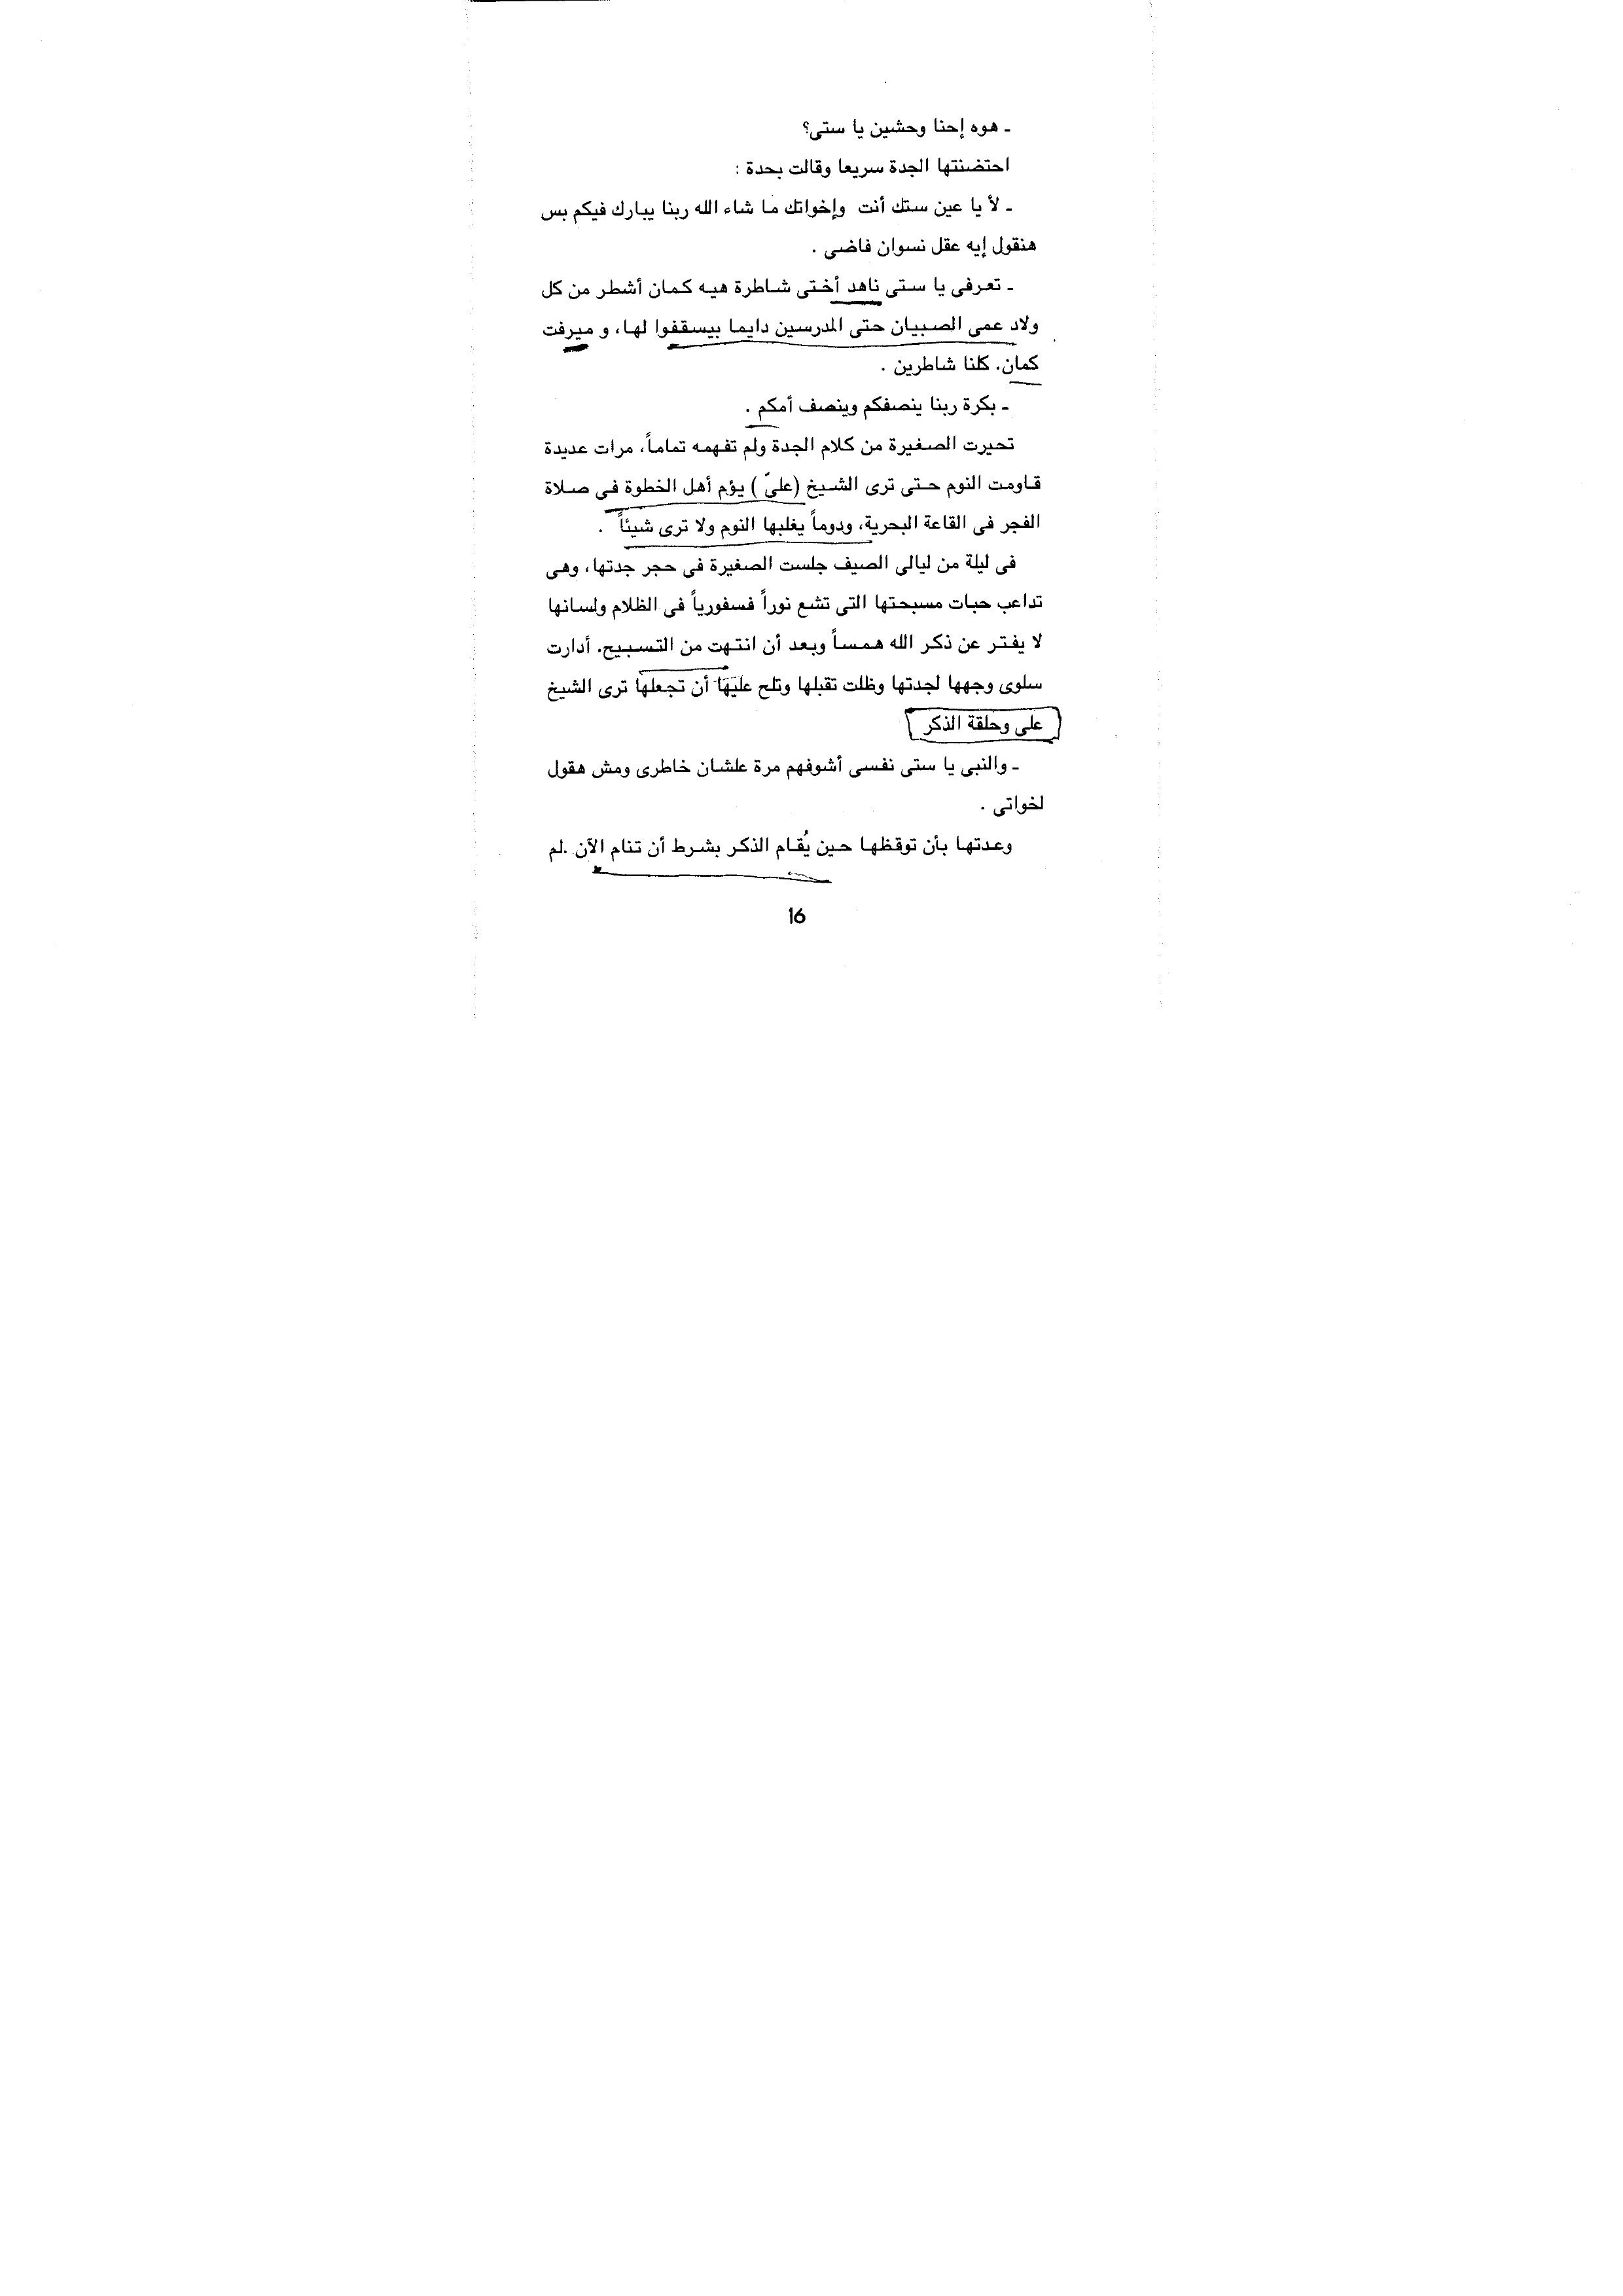 ـ هوه إحنا وحشين يا ستى؟
احتضنتها الجدة سريعا وقالت بحدة :
ـ لأ يا عين ستك أنت وإخواتك ما شاء الله ربنا يبارك فيكم بس
هنقول إيه عقل نسوان فاضى .
ـ تعرفى يا ستى ناهد أختى شاطرة هيه كمان أشطر من كل
ولاد عمى الصبيان حتى المدرسين دايما بيسقفوا لها، و ميرفت
كمان. كلنا شاطرين .
ـ بكرة ربنا ينصفكم وينصف أمكم .
تحيرت الصغيرة من كلام الجدة ولم تفهمه تماماً، مرات عديدة
قاومت النوم حتى ترى الشيخ (علىّ ) يؤم أهل الخطوة فى صلاة
الفجر فى القاعة البحرية، ودوماً يغلبها النوم ولا ترى شيئاً .
فى ليلة من ليالى الصيف جلست الصغيرة فى حجر جدتها، وهى
تداعب حبات مسبحتها التى تشع نوراً فسفورياً فى الظلام ولسانها
لا يفتر عن ذكر الله همساً وبعد أن انتهت من التسبيح. أدارت
سلوى وجهها لجدتها وظلت تقبلها وتلح عليها أن تجعلها ترى الشيخ
على وحلقة الذكر
ـ والنبى يا ستى نفسى أشوفهم مرة علشان خاطرى ومش هقول
لخواتى .
وعدتها بأن توقظها حين يُقام الذكر بشرط أن تنام الآن .لم
16